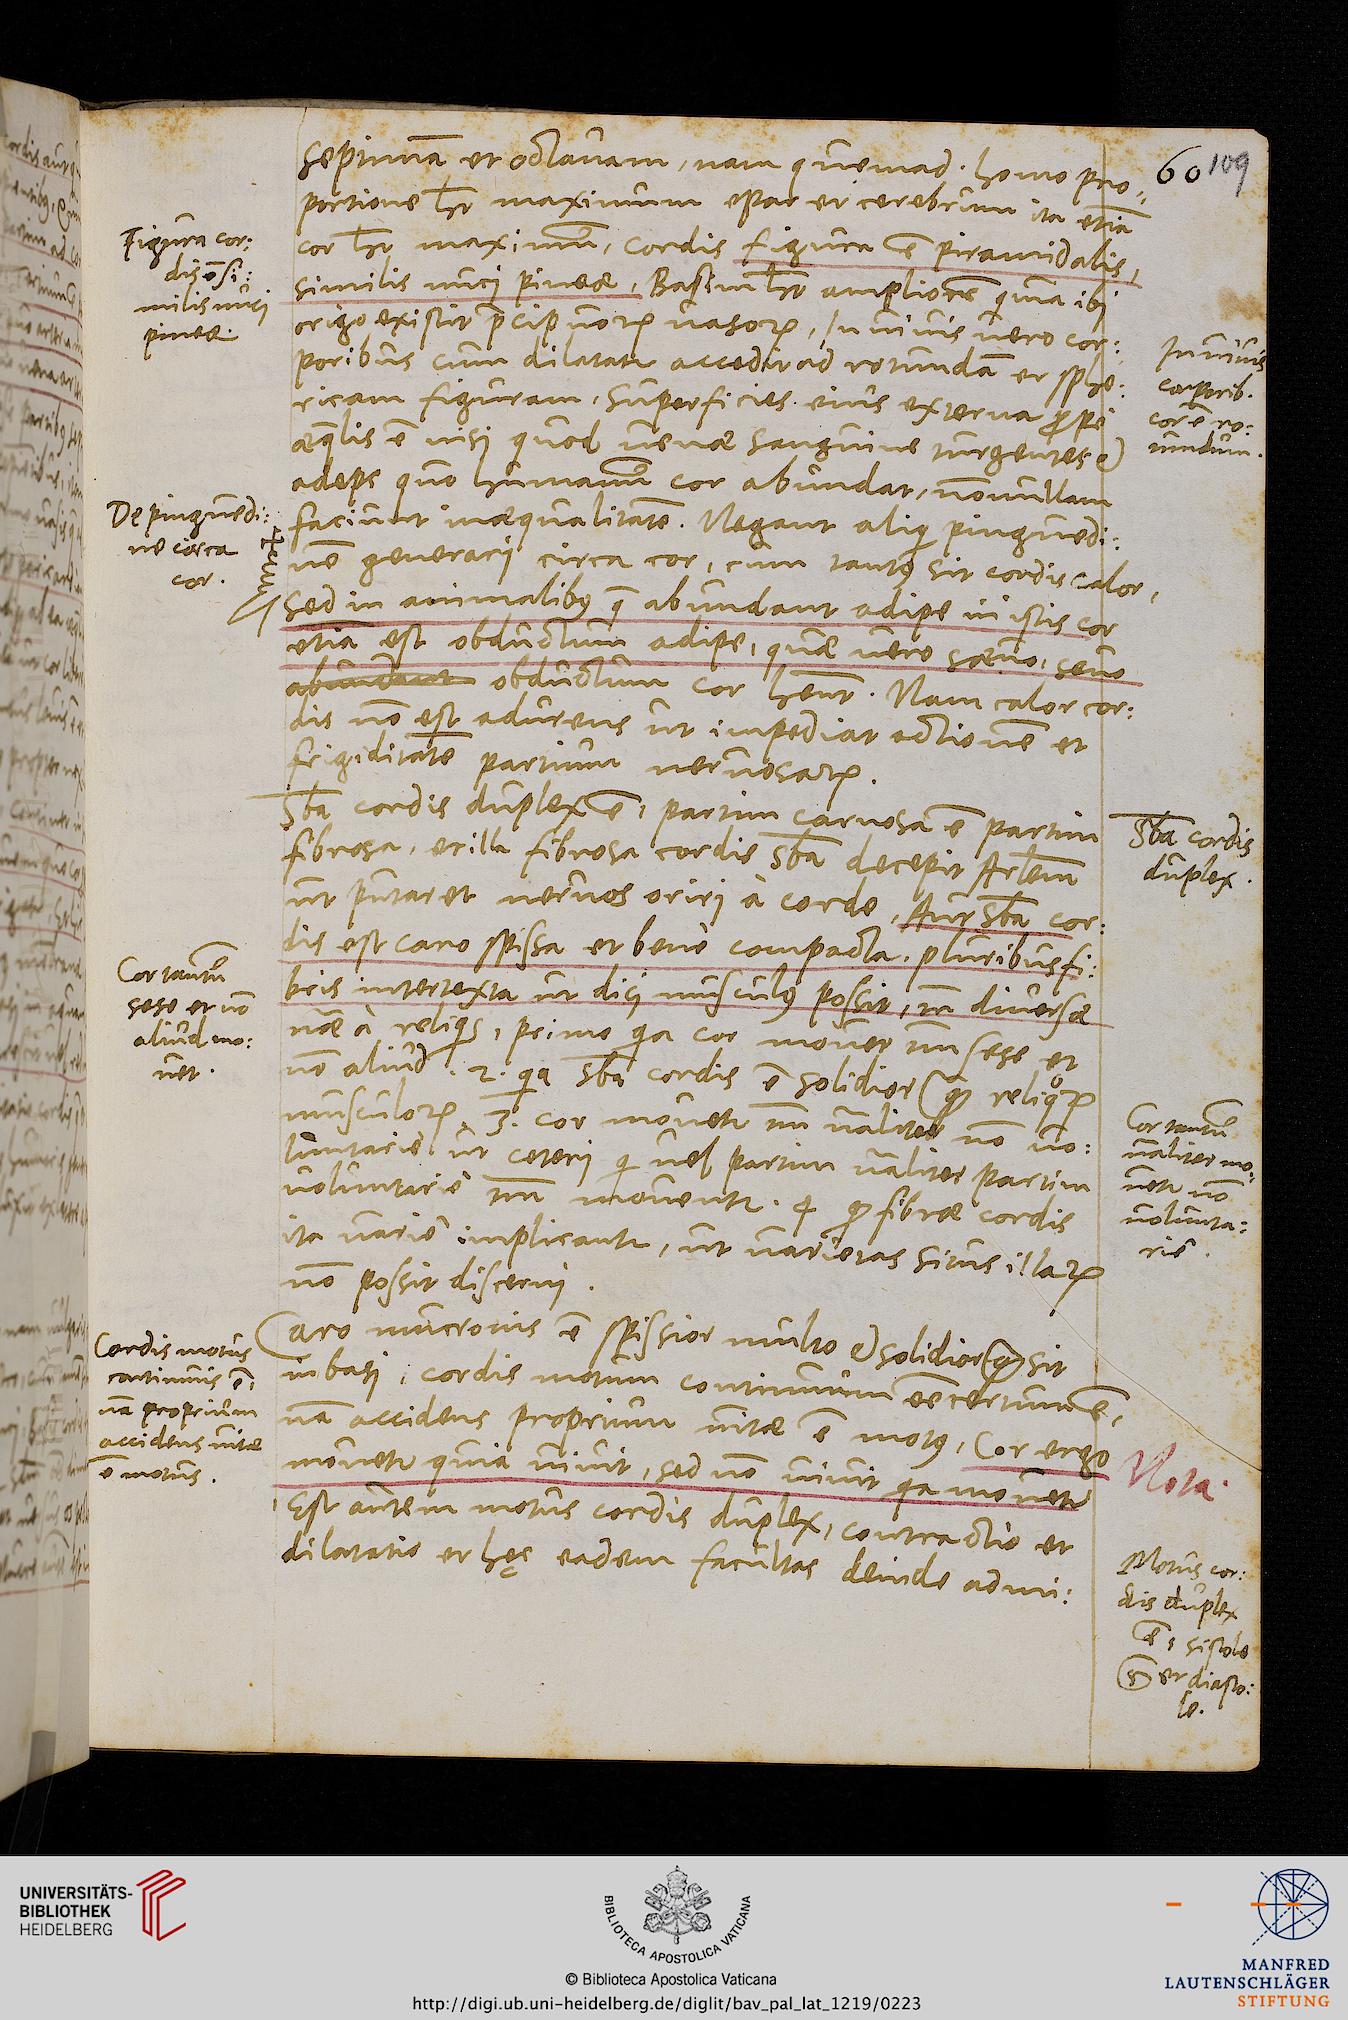 60 109
sepimam et octavam, nam quemad. homo pro:
portione hr̄ maximum epar et cerebrum ita etiā
cor hr̄ maximū, cordis figura ē piramidalis,
similis nuci pineæ, Basim hr̄ ampliorē quia ibi
origo existit p̄cipuorꝝ vasorꝝ, In vivis vero cor:
poribus cum dilatatr accedit ad rotundā et sphe:
ricam figuram, Superficies eius externa ꝓpe
æqlis ē nisi quod venæ sanguine turgentes et
adeps quo humanū cor abundat, nōnullam
faciunt inæqualitatē. Negant aliq pinguedi:
nē generari circa cor, cum tantꝰ sit cordis calor,
sed in animalibꝰ q̄ abundant adipe in istis cor
etiā est obductum adipe, quæ vero sævo, sevo
abundant obductum cor hent. Nam calor cor:
dis nō est adurens ut impediat actionē et
frigiditatē partium nervosarꝝ.
Sb̄a cordis duplex ē, partim carnosa ē partim
fibrosa, et illa fibrosa cordis sb̄a decepit Arlem̄
ut putaret nervos oriri à corde, Aut sb̄a cor:
dis est caro spissa et bene compacta, pluribus fi:
bris intertexta ut dici musculꝰ possit, tn̄ diversæ
nāe à reliqs, primo qa cor movet tm̄ sese et
nō aliud. 2. qa sb̄a cordis ē solidior qꝫ reliqorꝝ
musculorꝝ, 3. cor movetr tm̄ nāliter nō vo:
luntariè ut ceteri qi vel partim nāliter partim
voluntariè tm̄ moventr. 4 ꝙ fibræ cordis
ita variè implicantr, ut varietas situs illarꝝ
nō possit discerni.
Caro mucronis ē spissior multo et solidior qꝫ sit
in basi, cordis motum continuum eē certum ē,
nā accidens proprium vitæ ē motꝰ, Cor ergo
movetr quia vivit, sed nō vivit qa movetr
Est autem motus cordis duplex, contractio et
dilatatio et hęc eadem facultas deinde admi:
Figura cor:
dis ē si:
milis nuci
pineæ.
De pinguedi:
ne circa
cor.
Cor tantū
sese et nō
aliud mo:
vet.
Cordis motus
continuus ē,
nā proprium
accidens vitæ
ē motus.
In vivis
corporib.
cor ē ro:
tundum.
Sb̄a cordis
duplex.
Cor tantū
nāliter mo:
vetr nō
volunta:
riè.
Nota
Motus cor:
dis duplex
ē, sistole
et diasto:
le.
UNIVERSITÄTS-
BIBLIOTHEK
HEIDELBERG
BIBLIOTECA APOSTOLICA VATICANA
© Biblioteca Apostolica Vaticana
http://digi.ub.uni-heidelberg.de/diglit/bav_pal_lat_1219/0223
MANFRED
LAUTENSCHLÄGER
STIFTUNG